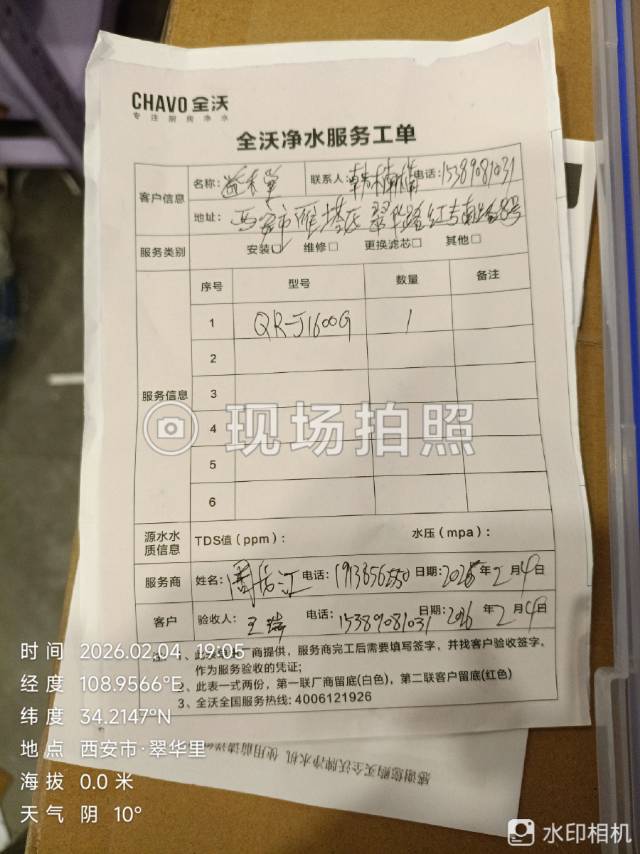 CHAVO 全沃
专注厨房净水
全沃净水服务工单
客户信息
名称：
联系人：韩楠楠 电话：15389081031
地址：西安市雁塔区翠华路红专南路8号
服务类别
安装☐ 维修☐ 更换滤芯☐ 其他☐
服务信息
序号 型号 数量 备注
1 QR-J1600G 1
2
3
4
5
6
现场拍照
源水水质信息
TDS值（ppm）： 水压（mpa）：
服务商 姓名： 电话： 日期：2026年2月4日
客户 验收人：王瑞 电话：15389081031 日期：2026年2月4日
1、 商提供，服务商完工后需要填写签字，并找客户验收签字，
作为服务验收的凭证；
2、此表一式两份，第一联厂商留底(白色)，第二联客户留底(红色)
3、全沃全国服务热线：4006121926
感谢您购买全沃牌净水机 使用前请详
时间 2026.02.04 19:05
经度 108.9566°E
纬度 34.2147°N
地点 西安市·翠华里
海拔 0.0 米
天气 阴 10°
水印相机